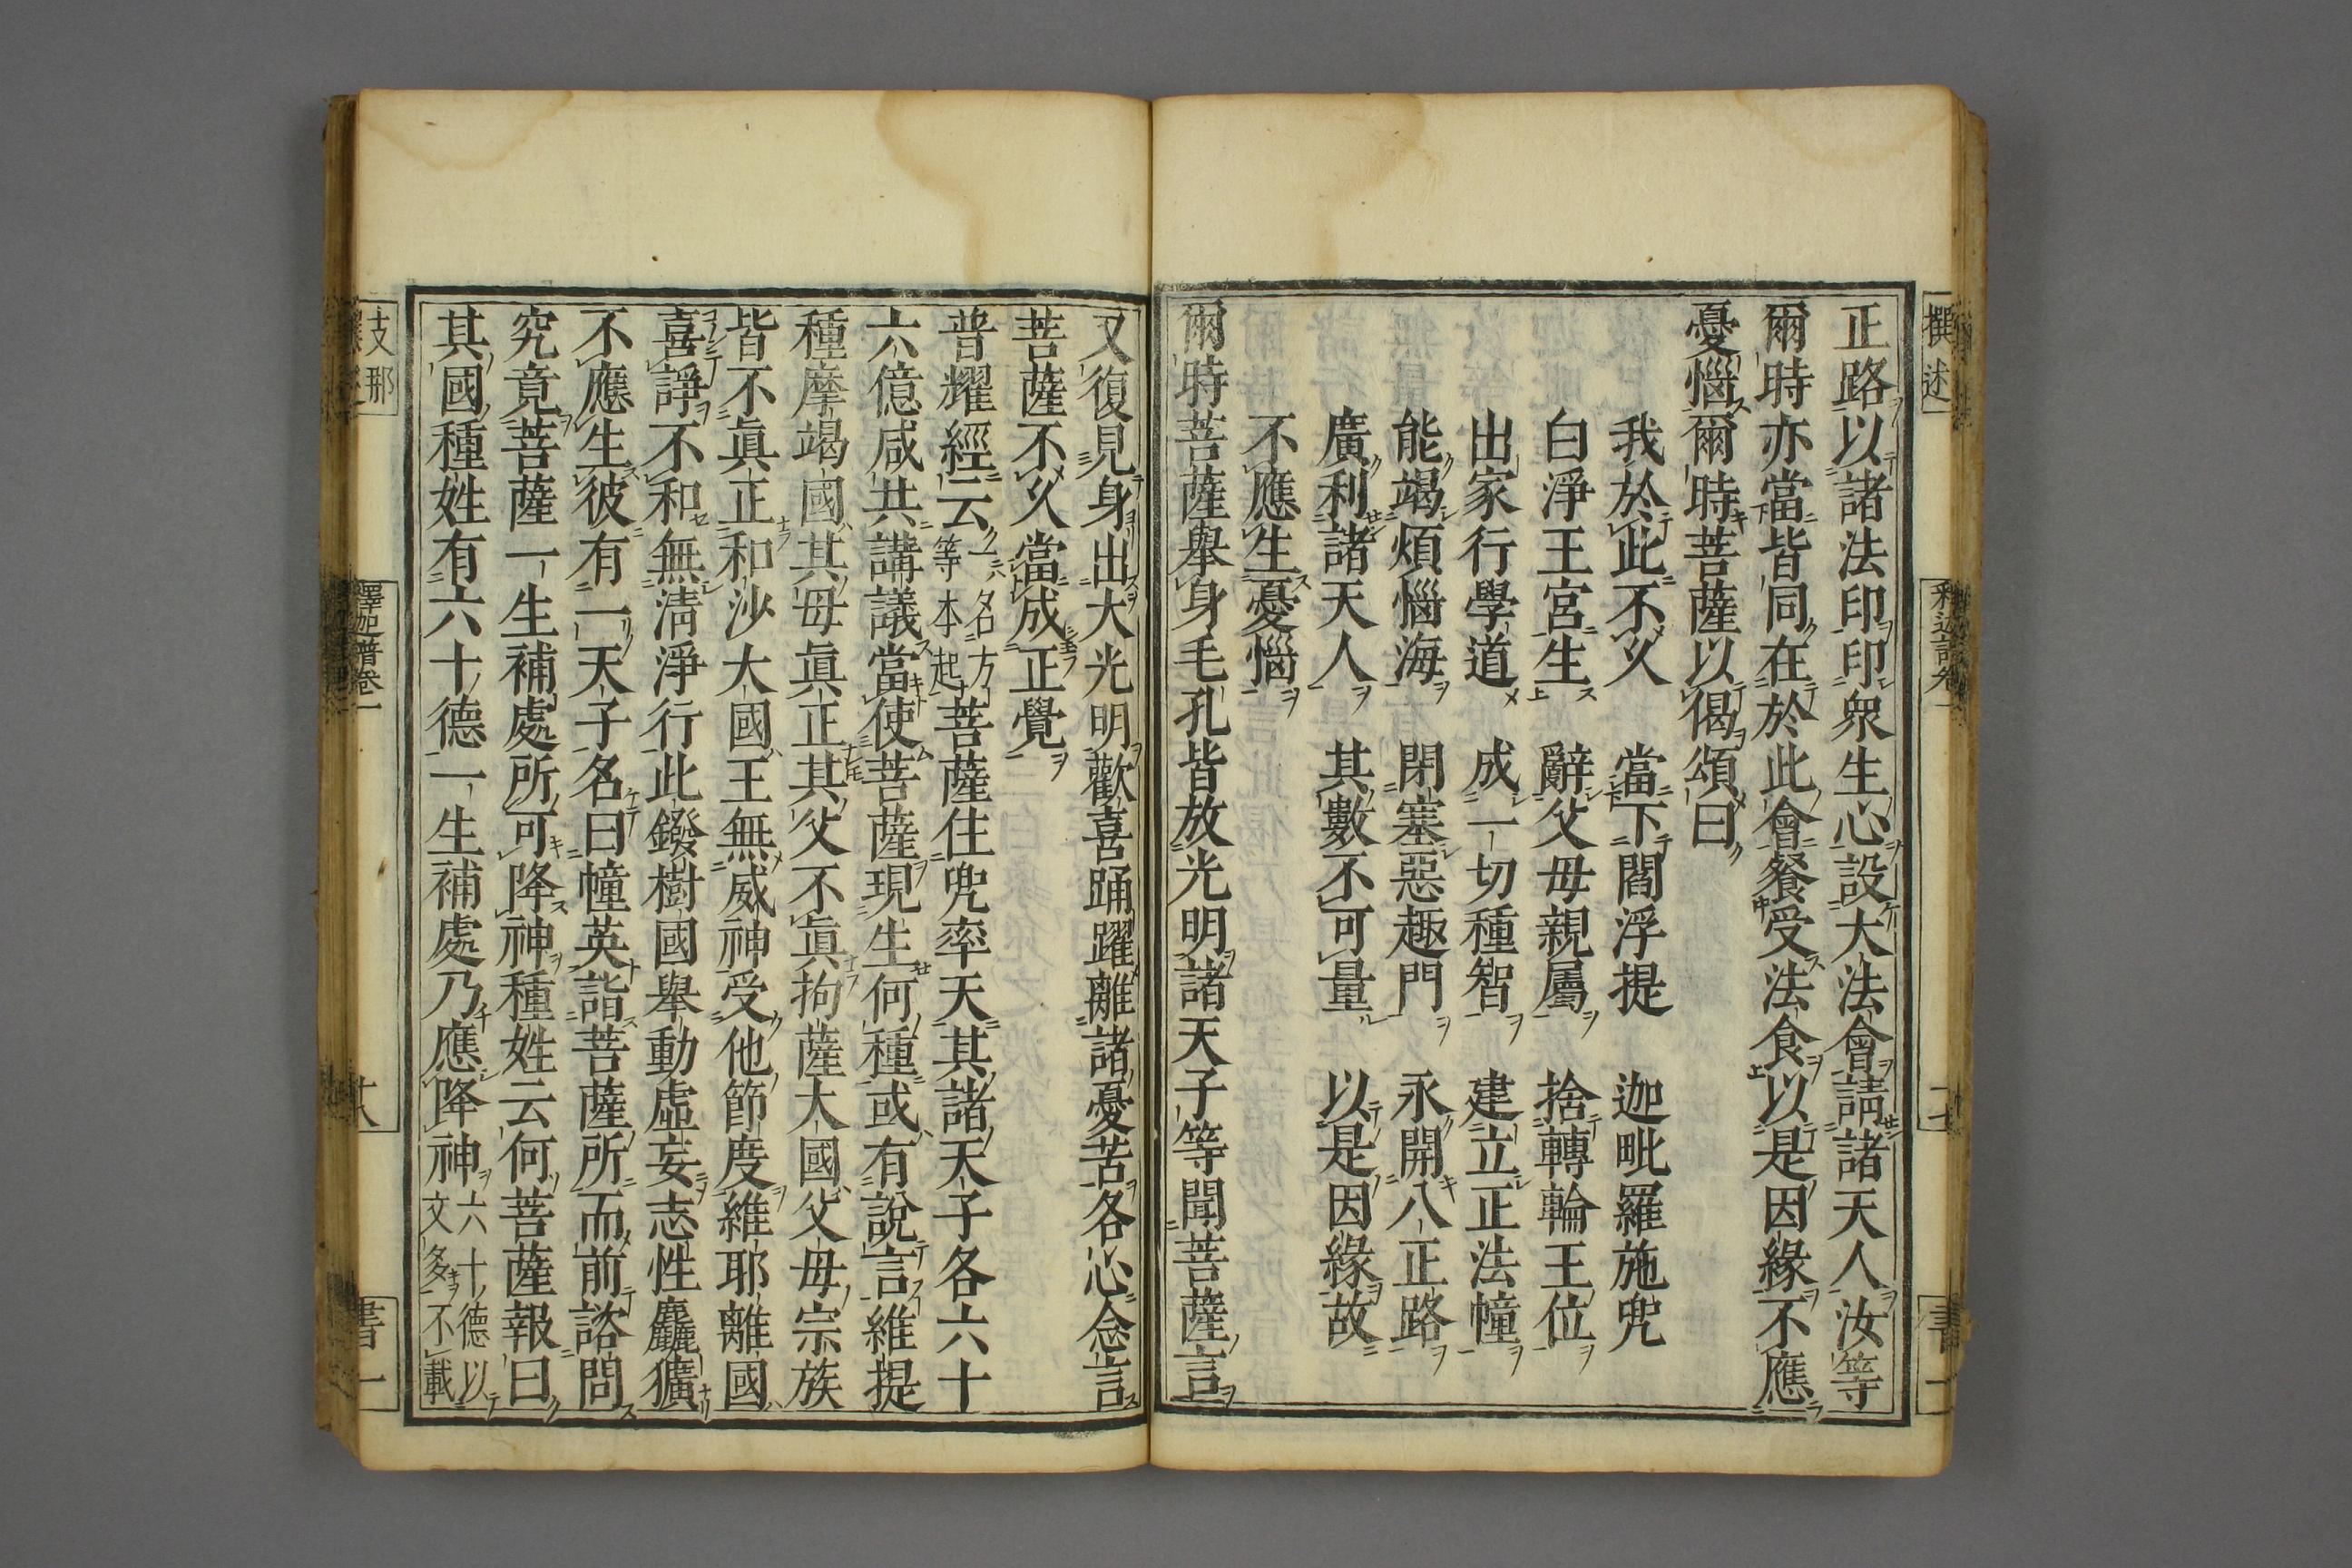 正路以諸法印印衆生心設大法會請諸天人汝等
爾時亦當皆同在於此會餐受法食以是因緣不應
憂惱爾時菩薩以偈頌曰
我於此不久　當下閻浮提　迦毗羅施兜
白淨王宮生　辭父母親屬　捨轉輪王位
出家行學道　成一切種智　建立正法幢
能竭煩惱海　閉塞惡趣門　永開八正路
廣利諸天人　其數不可量　以是因緣故
不應生憂惱
爾時菩薩舉身毛孔皆放光明諸天子等聞菩薩言
又復見身出大光明歡喜踊躍離諸憂苦各心念言
菩薩不久當成正覺
普耀經云一名方等本起菩薩住兜率天其諸天子各六十
六億咸共講議當使菩薩現生何種或有說言維提
種摩竭國其母眞正其父不眞拘薩大國父母宗族
皆不眞正和沙大國王無威神受他節度維耶離國
喜諍不和無淸淨行此鏺樹國舉動虛妄志性麤獷
不應生彼有一天子名曰幢英詣菩薩所而前諮問
究竟菩薩一生補處所可降神種姓云何菩薩報曰
其國種姓有六十德一生補處乃應降神六十德以文多不載
支那
撰述
釋迦譜卷一
十八
書一